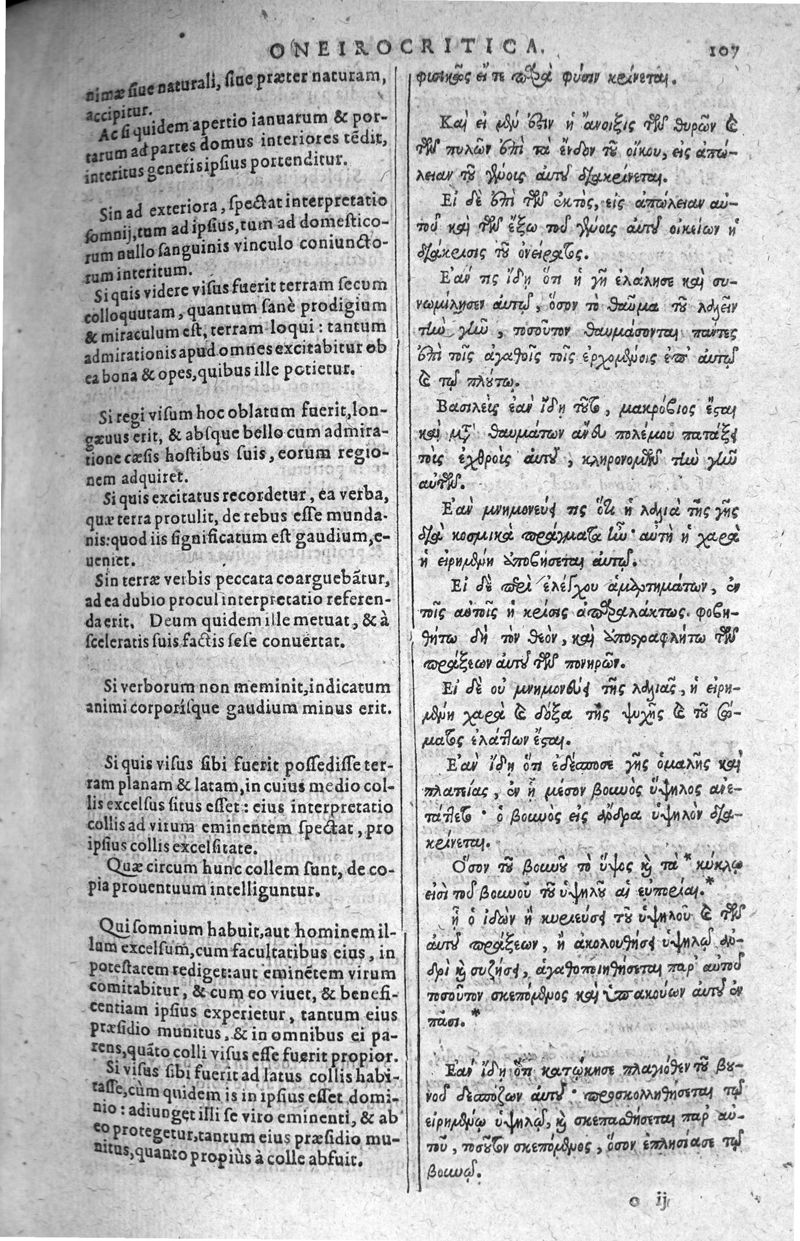 ONEIROCRITICA. 107
nimæ siue naturali, siue præter naturam,
accipitur.
Ac si quidem apertio ianuarum & por-
tarum ad partes domus interiores tẽdit,
interitus generis ipsius portenditur.
Sin ad exteriora, spectat interpretatio
somnij, tum ad ipsius, tum ad domestico-
rum nullo sanguinis vinculo coniuncto-
rum interitum.
Si quis videre visus fuerit terram secum
colloquutam, quantum sanè prodigium
& miraculum est, terram loqui: tantum
admirationis apud omnes excitabitur ob
ea bona & opes, quibus ille potietur.
Si regi visum hoc oblatum fuerit, lon-
gæuus erit, & absque bello cum admira-
tione cæsis hostibus suis, eorum regio-
nem adquiret.
Si quis excitatus recordetur, ea verba,
quæ terra protulit, de rebus esse munda-
nis: quod iis significatum est gaudium, e-
ueniet.
Sin terræ verbis peccata coarguebãtur,
ad ea dubio procul interpretatio referen-
da erit. Deum quidem ille metuat, & à
sceleratis suis factis sese conuertat.
Si verborum non meminit, indicatum
animi corporisque gaudium minus erit.
Si quis visus sibi fuerit possedisse ter-
ram planam & latam, in cuius medio col-
lis excelsus situs esset: eius interpretatio
collis ad virum eminentem spectat, pro
ipsius collis excelsitate.
Quæ circum hunc collem sunt, de co-
pia prouentuum intelliguntur.
Qui somnium habuit, aut hominem il-
lum excelsum, cum facultatibus eius, in
potestatem rediget: aut eminẽtem virum
comitabitur, & cum eo viuet, & benefi-
centiam ipsius experietur, tantum eius
præsidio munitus, & in omnibus ei pa-
rens, quãto colli visus esse fuerit propior.
Si visus sibi fuerit ad latus collis habi-
tasse, cùm quidem is in ipsius esset domi-
nio: adiunget illi se viro eminenti, & ab
eo protegetur, tantum eius præsidio mu-
nitus, quanto propiùs à colle abfuit.
φυσικῶς εἴτε παρὰ φύσιν κρίνεται.
Καὶ εἰ μὲν ἐστιν ἡ ἄνοιξις τῶν θυρῶν καὶ
τῶν πυλῶν ἐπὶ τὰ ἔνδον τοῦ οἴκου, εἰς ἀπώ-
λειαν τοῦ γένους αὐτοῦ διακρίνεται.
Εἰ δὲ ἐπὶ τῶν ἐκτὸς, εἰς ἀπώλειαν αὐ-
τοῦ καὶ τῶν ἔξω τοῦ γένους αὐτοῦ οἰκείων ἡ
διάκρισις τοῦ ὀνείρατος.
Ἐάν τις ἴδῃ ὅτι ἡ γῆ ἐλάλησε καὶ συ-
νωμίλησεν αὐτῷ, ὅσον τὸ θαῦμα τοῦ λαλεῖν
τὴν γῆν, τοσοῦτον θαυμάσονται πάντες
ἐπὶ τοῖς ἀγαθοῖς τοῖς ἐρχομένοις ἐπ' αὐτῷ
καὶ τῷ πλούτῳ.
Βασιλεὺς ἐὰν ἴδῃ τοῦτο, μακρόβιος ἔσται
καὶ μετὰ θαυμάτων ἄνευ πολέμου πατάξει
τοὺς ἐχθροὺς αὐτοῦ, κληρονομῶν τὴν γῆν
αὐτῶν.
Ἐὰν μνημονεύει τις ὅτι ἡ λαλιὰ τῆς γῆς
διὰ κοσμικὰ πράγματα ἦν· αὐτὴ ἡ χαρὰ
ἡ εἰρημένη ἀποβήσεται αὐτῷ.
Εἰ δὲ περὶ ἐλέγχου ἁμαρτημάτων, ἐν
τοῖς αὐτοῖς ἡ κρίσις ἀπαραλλάκτως. φοβη-
θήτω δὴ τὸν θεὸν, καὶ ἀποστραφήτω τῶν
πράξεων αὐτοῦ τῶν πονηρῶν.
Εἰ δὲ οὐ μνημονεύει τῆς λαλιᾶς, ἡ εἰρη-
μένη χαρὰ καὶ δόξα τῆς ψυχῆς καὶ τοῦ σώ-
ματος ἐλάττων ἔσται.
Ἐὰν ἴδῃ ὅτι ἐδέσποσε γῆς ὁμαλῆς καὶ
πλατείας, ἐν ᾗ μέσον βουνὸς ὕψηλος ἀνε-
τάθετο· ὁ βουνὸς εἰς ἄνδρα ὑψηλὸν δια-
κρίνεται.
Ὅσον τοῦ βουνοῦ τὸ ὕψος καὶ τὰ* κύκλῳ
εἰσὶ τοῦ βουνοῦ τοῦ ὑψηλοῦ αἱ εὐπορίαι.*
ἢ ὁ ἰδὼν ἢ κυριεύσει τοῦ ὑψηλοῦ καὶ τῶν
αὐτοῦ πράξεων, ἢ ἀκολουθήσει ὑψηλῷ ἀν-
δρὶ καὶ συζήσει, ἀγαθοποιηθήσεται παρ' αὐτοῦ
τοσοῦτον σκεπόμενος καὶ ὑπακούων αὐτοῦ ἐν
πᾶσι.
Ἐὰν ἴδῃ ὅτι κατῴκησε πλαγιόθεν τοῦ βου-
νοῦ δεσπόζων αὐτοῦ· προσκολληθήσεται τῷ
εἰρημένῳ ὑψηλῷ, καὶ σκεπασθήσεται παρ' αὐ-
τοῦ, τοσοῦτον σκεπόμενος, ὅσον ἐπλησίασε τῷ
βουνῷ.
o ij